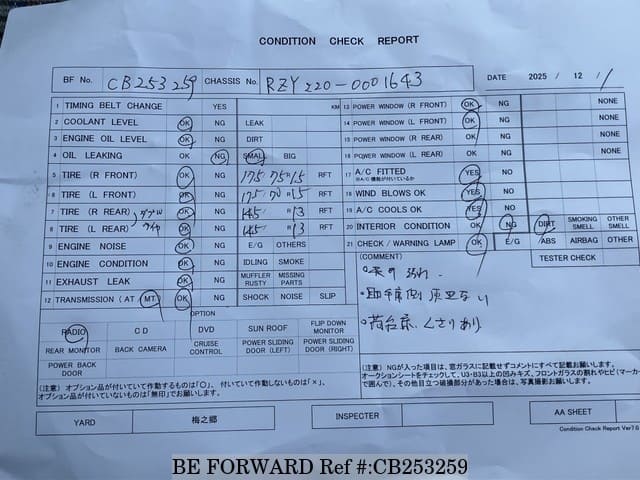 CONDITION CHECK REPORT
BF No. CB253259 CHASSIS No. RZY220-0001643 DATE 2025 / 12 / 1
1 TIMING BELT CHANGE YES KM
2 COOLANT LEVEL OK NG LEAK
3 ENGINE OIL LEVEL OK NG DIRT
4 OIL LEAKING OK NG SMALL BIG
5 TIRE (R FRONT) OK NG 175 75R15 RFT
6 TIRE (L FRONT) OK NG 175 R15 RFT
7 TIRE (R REAR) ダブル OK NG 145 R13 RFT
8 TIRE (L REAR) タイヤ OK NG 145 R13 RFT
9 ENGINE NOISE OK NG E/G OTHERS
10 ENGINE CONDITION OK NG IDLING SMOKE
11 EXHAUST LEAK OK NG MUFFLER RUSTY MISSING PARTS
12 TRANSMISSION (AT MT) OK NG SHOCK NOISE SLIP
13 POWER WINDOW (R FRONT) OK NG NONE
14 POWER WINDOW (L FRONT) OK NG NONE
15 POWER WINDOW (R REAR) OK NG NONE
16 POWER WINDOW (L REAR) OK NG NONE
17 A/C FITTED YES NO
※A/C機能が付いているか
18 WIND BLOWS OK YES NO
19 A/C COOLS OK YES NO
20 INTERIOR CONDITION OK NG DIRT SMOKING SMELL OTHER SMELL
21 CHECK / WARNING LAMP OK E/G ABS AIRBAG OTHER
TESTER CHECK
(COMMENT)
汚れ
・助手席側
・荷台床、くさりあり
OPTION
RADIO CD DVD SUN ROOF FLIP DOWN MONITOR
REAR MONITOR BACK CAMERA CRUISE CONTROL POWER SLIDING DOOR (LEFT) POWER SLIDING DOOR (RIGHT)
POWER BACK DOOR
(注意) オプション品が付いていて作動するものは「○」, 付いていて作動しないものは「×」,
オプション品が付いていないものは「無印」でお願いします。
(注意) NGが入った項目は、窓ガラスに記載せずコメントにすべて記載お願いします。
オークションシートをチェックして、U3・B3以上の凹みキズ、フロントガラスの割れやヒビ(マーカー
で囲んで)、その他目立つ破損部分があった場合は、写真撮影お願いします。
YARD 梅之郷 INSPECTER AA SHEET
Condition Check Report Ver7.0
BE FORWARD Ref #:CB253259